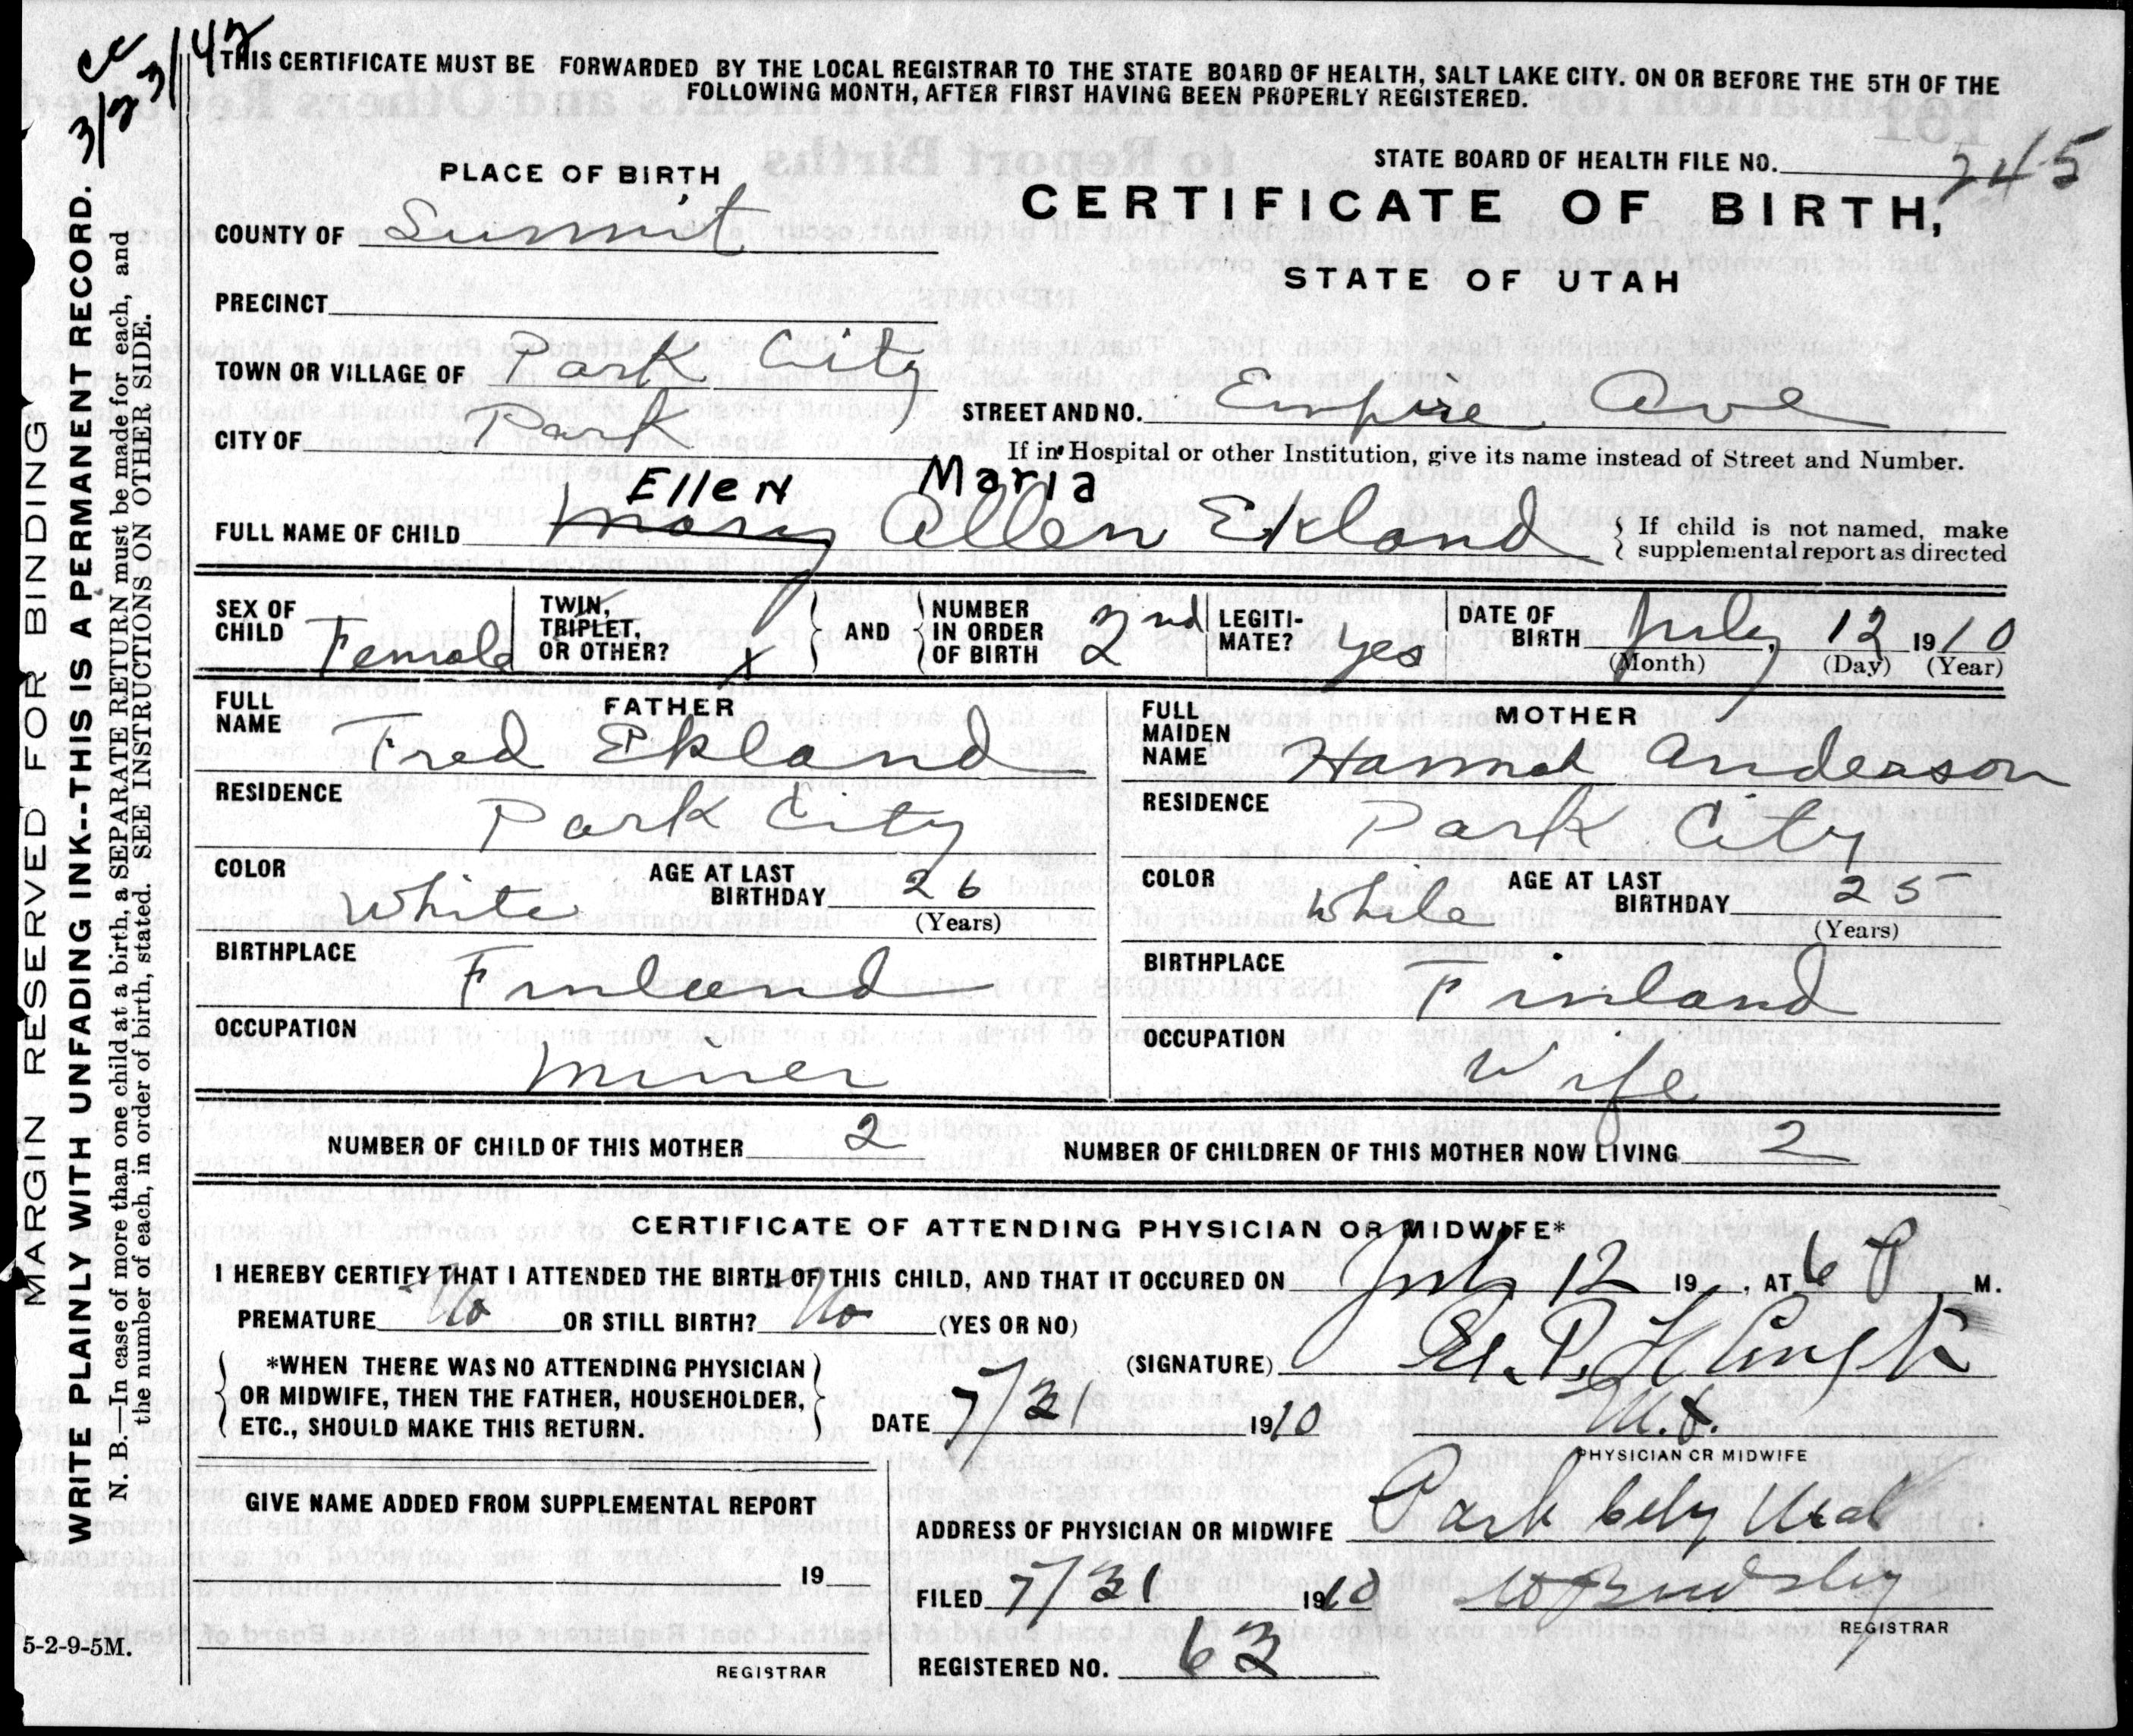 THIS CERTIFICATE MUST BE FORWARDED BY THE LOCAL REGISTRAR TO THE STATE BOARD OF HEALTH, SALT LAKE CITY. ON OR BEFORE THE 5TH OF THE
FOLLOWING MONTH, AFTER FIRST HAVING BEEN PROPERLY REGISTERED.
STATE BOARD OF HEALTH FILE NO. 245
PLACE OF BIRTH
CERTIFICATE OF BIRTH,
STATE OF UTAH
COUNTY OF Summit
PRECINCT
TOWN OR VILLAGE OF Park City
STREET AND NO. Empire Ave
CITY OF Park
If in Hospital or other Institution, give its name instead of Street and Number.
Ellen Maria
FULL NAME OF CHILD Mary Allen Ekland
If child is not named, make
supplemental report as directed
SEX OF CHILD Female
TWIN, TRIPLET, OR OTHER? x
AND
NUMBER IN ORDER OF BIRTH 2nd
LEGITIMATE? yes
DATE OF BIRTH July, 12 1910
(Month) (Day) (Year)
FATHER
FULL NAME Fred Ekland
RESIDENCE Park City
COLOR White
AGE AT LAST BIRTHDAY 26
(Years)
BIRTHPLACE Finland
OCCUPATION miner
MOTHER
FULL MAIDEN NAME Hannah Anderson
RESIDENCE Park City
COLOR White
AGE AT LAST BIRTHDAY 25
(Years)
BIRTHPLACE Finland
OCCUPATION Wife
NUMBER OF CHILD OF THIS MOTHER 2
NUMBER OF CHILDREN OF THIS MOTHER NOW LIVING 2
CERTIFICATE OF ATTENDING PHYSICIAN OR MIDWIFE*
I HEREBY CERTIFY THAT I ATTENDED THE BIRTH OF THIS CHILD, AND THAT IT OCCURED ON July 12 19 , AT 6 P M.
PREMATURE No OR STILL BIRTH? No (YES OR NO)
*WHEN THERE WAS NO ATTENDING PHYSICIAN
OR MIDWIFE, THEN THE FATHER, HOUSEHOLDER,
ETC., SHOULD MAKE THIS RETURN.
(SIGNATURE)
M.D.
DATE 7/31 1910
PHYSICIAN OR MIDWIFE
GIVE NAME ADDED FROM SUPPLEMENTAL REPORT
19
REGISTRAR
ADDRESS OF PHYSICIAN OR MIDWIFE Park City Utah
FILED 7/31 1910
REGISTRAR
REGISTERED NO. 63
5-2-9-5M.
MARGIN RESERVED FOR BINDING
WRITE PLAINLY WITH UNFADING INK--THIS IS A PERMANENT RECORD.
N. B.—In case of more than one child at a birth, a SEPARATE RETURN must be made for each, and
the number of each, in order of birth, stated. SEE INSTRUCTIONS ON OTHER SIDE.